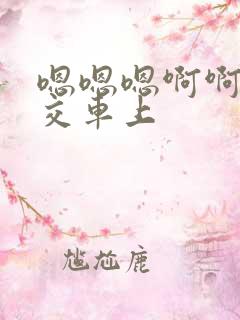 嗯嗯嗯啊啊
交车上
尴尬鹿